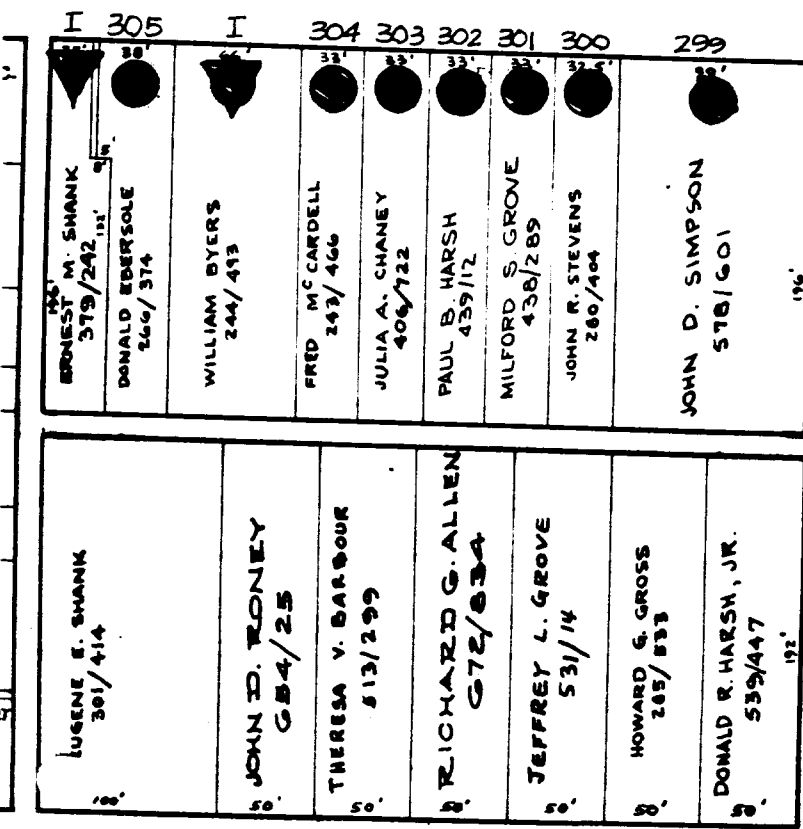 I 305 I 304 303 302 301 300 299
38' 33' 33' 33' 33' 32.5'
196'
ERNEST M. SHANK
379/242
192'
DONALD EBERSOLE
266/374
WILLIAM BYERS
244/493
FRED McCARDELL
243/466
JULIA A. CHANEY
406/722
PAUL B. HARSH
439/12
MILFORD S. GROVE
438/289
JOHN R. STEVENS
280/404
JOHN D. SIMPSON
578/601
196'
EUGENE E. SHANK
301/414
100'
JOHN D. RONEY
684/25
50'
THERESA V. BARBOUR
613/299
50'
RICHARD G. ALLEN
672/834
50'
JEFFREY L. GROVE
531/14
50'
HOWARD G. GROSS
285/533
50'
DONALD R. HARSH, JR.
539/447
192'
50'